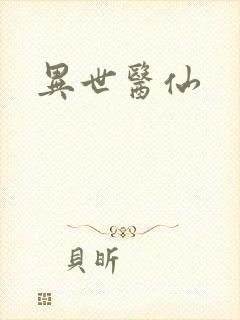 異世醫仙
貝昕